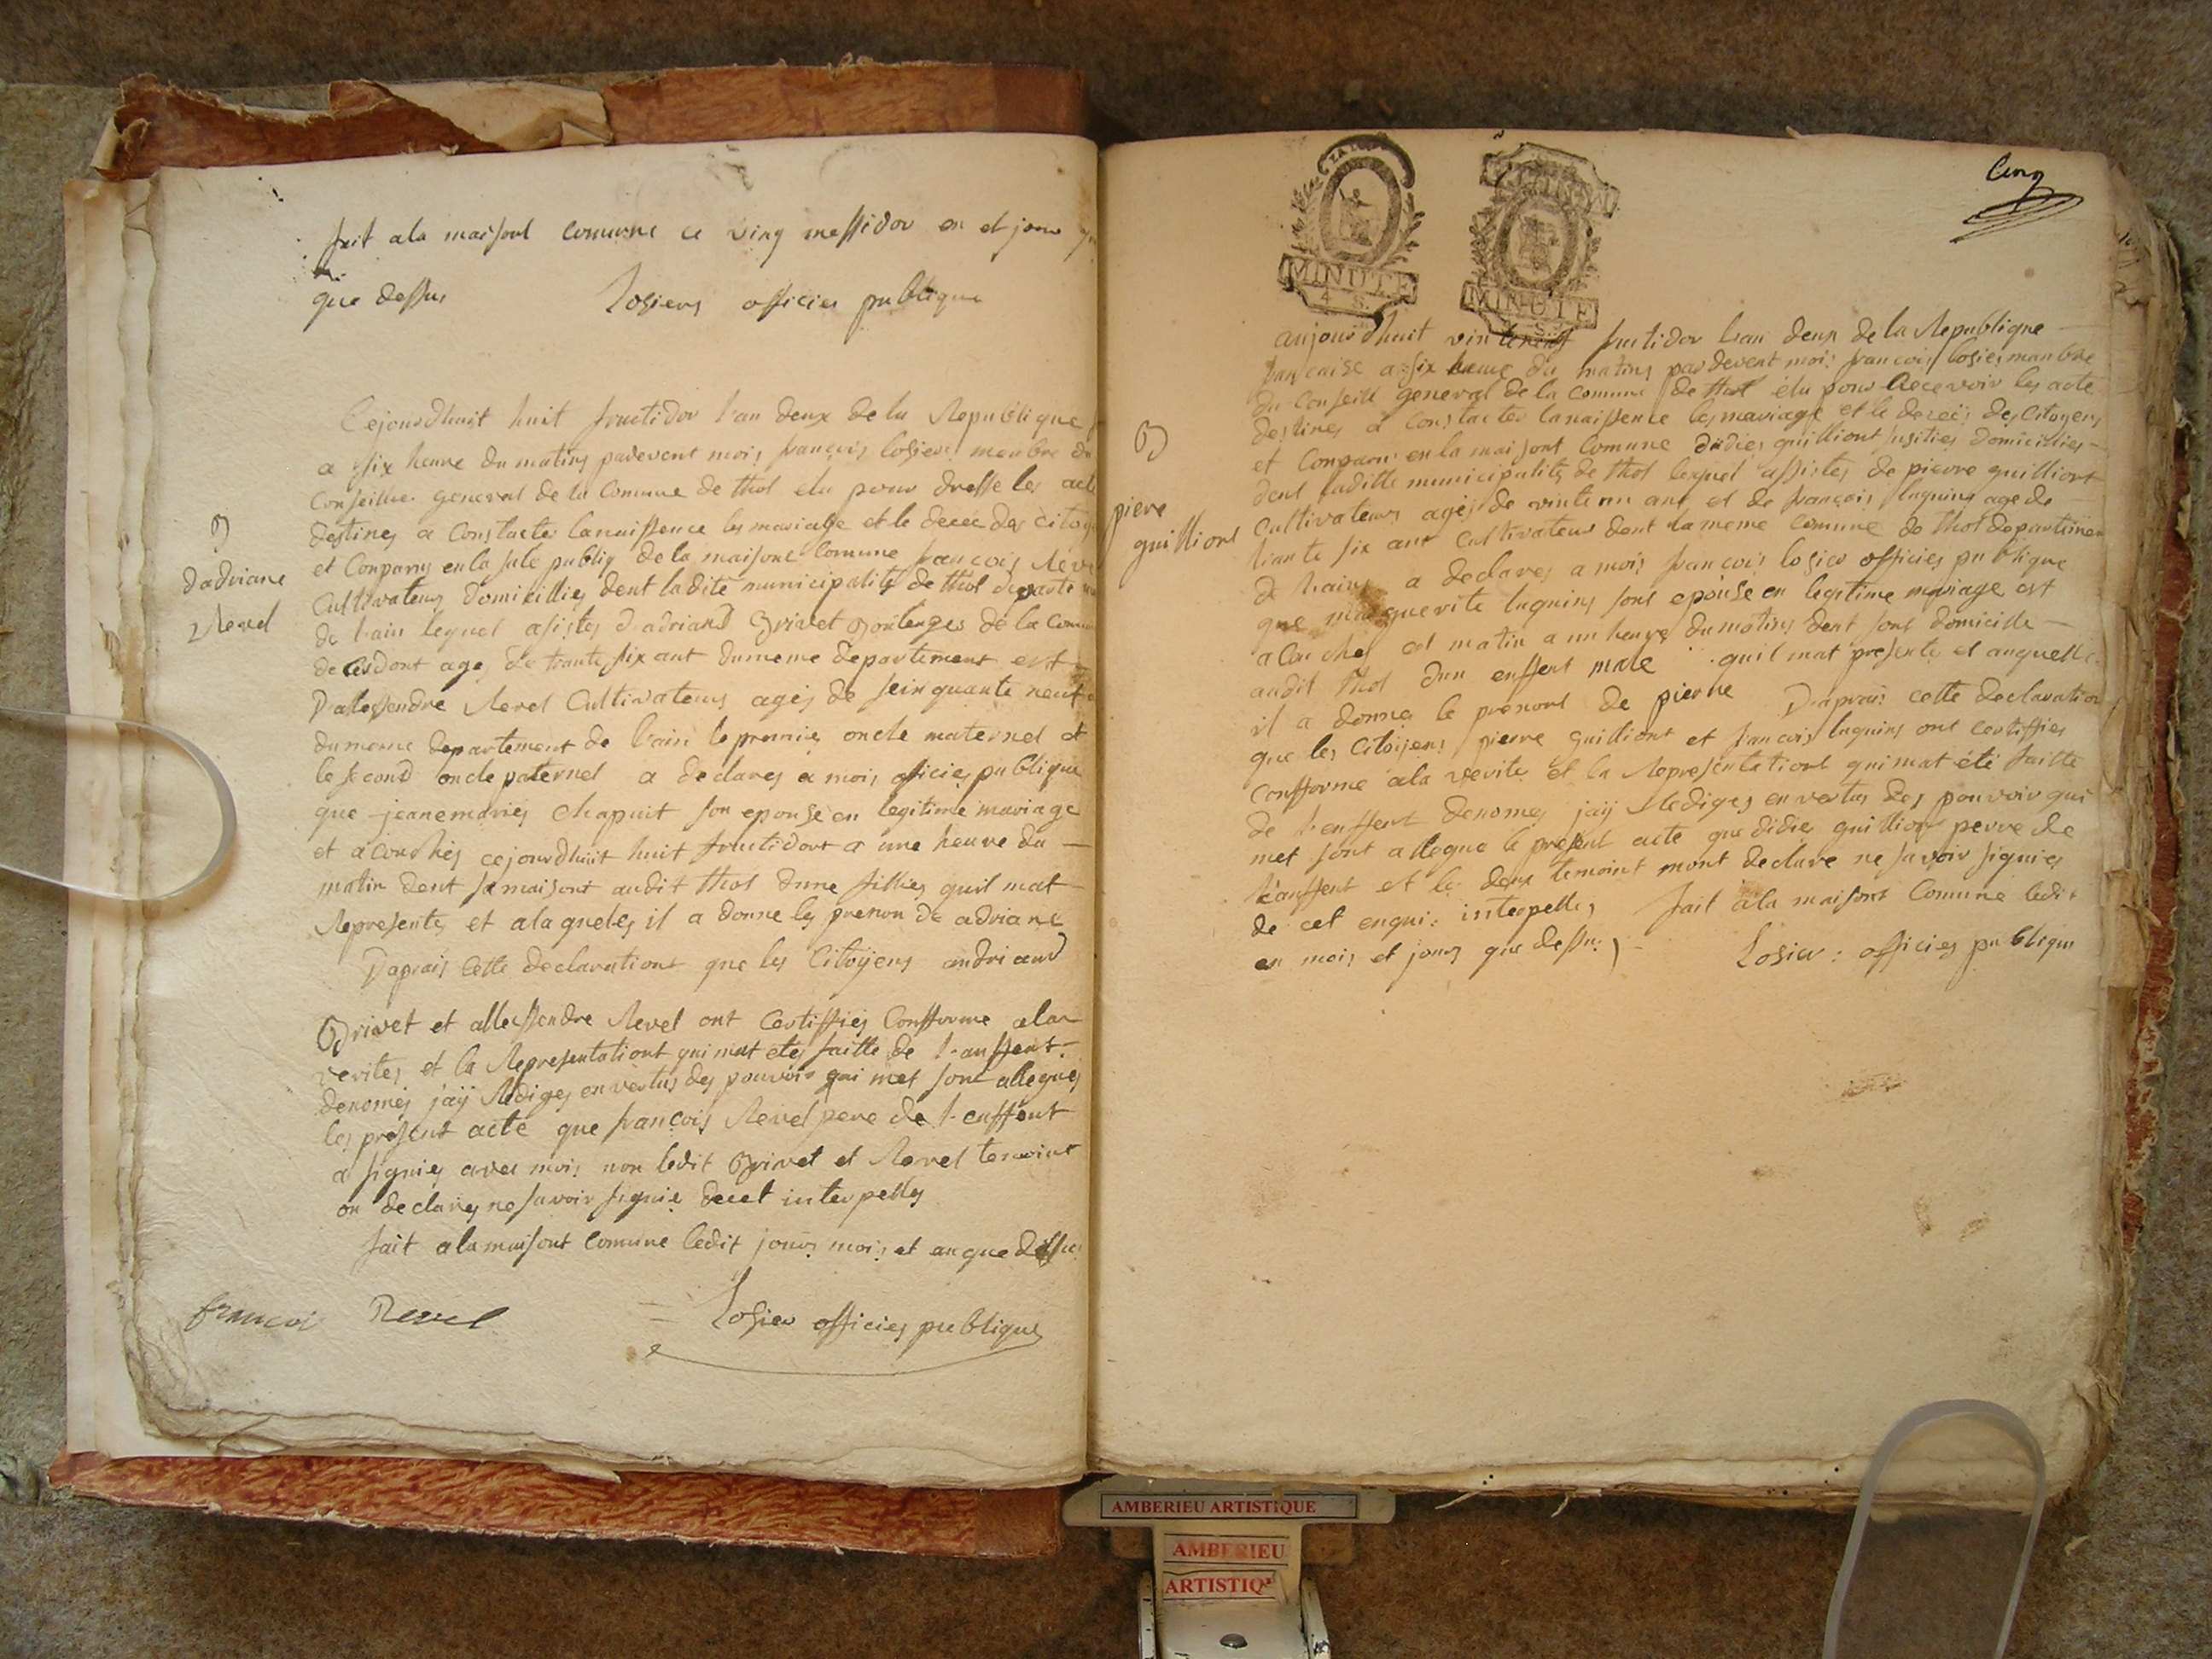 fait a la maisont comune ce ving messidor en et jour
que dessus Losiers officies publique
Cejourdhuit huit fructidor l'an deux de la Republique
a six heure du matins padevent mois françois losiers menbre du
Conseilles general de la Comune de thol elu pour dresse les acte
destines a Constactes lanaissence les mariage et le decec des citoye
et Comparus en la sale publiq de la maisont Comune francois Reve
Cultivateurs domicilliés dent ladite municipalités de thol departe
de l'ain lequel asistes dadriand Brivet Boulenges de la Comu
de Cesdont age de trante six ant dumeme departement est
Dallessendre Revel Cultivateurs agés de seinquante neuf
dumeme departement de l'ain le premies oncle maternel et
le second oncle paternel a declares a mois officies publique
que jeanemariés chapuit son epouse en legitime mariage
et acouchés cejourdhuit huit fructidort a une heure du
matin dent sa maisont audit thol dune fillies quil mat
Representes et alaqueles il a donne les prenon de adriane
Daprais Cette declarationt que les Citoyens andriand
Brivet et allessendre Revel ont Certiffiés Confforme ala
verites et la Representationt qui mat etes faitte de l'anffent
denomés j'aÿ Rediges en vertus des pouvoir qui met sont allegues
les present acte que françois Revel pere de l'enffent
a signies avec mois non ledit Brivet et Revel temoint
on declares ne savoir signie decet interpelles
fait ala maisont Comune ledit jours mois et an que dessus
francois Revel Losier officies publique
dadriane
Revel
Cinq
MINUTE
4 S.
MINUTE
aujourdhuit vint fructidor lan deux de la Republique
françaisse a six heure du matins pardevent mois françois losies manbre
du Conseill general de la Comune de thol elu pour Recevoir les acte
destines a Constactes lanaissence les mariage et le decés des Citoyens
et Comparus en la maisont Comune didies guilliont domicilliés
dent ladille municipalités de thol lequel assistes de pierre guilliont
Cultivateurs agés de vinte un ant et de françois luguins age de
trante six ant Cultivateur dent la meme Comune de thol departimen
de l'ains a declares a mois francois losier officies publique
que marguerite luguins sont epouse en legitime mariage est
acouches cet matin a un heure du matins dent sont domicille
audit thol dun enffent male quil mat presente et auquelle
il a donnes le prenont de pierre Daprais cette declaration
que les Citoijens pierre guilliont et francois luguins ont certiffies
Confforme ala verite et la Representationt quimat été faitte
de l'enffent denomes jaÿ Rediges en vertus des pouvoir qui
met sont allegue le present acte que didies guilliont perre de
l'anffent et le deux temoint mont declare ne savoir signies
de cet enqui: interpelles fait ala maisont Comune ledit
an mois et jours que dessus Losier: officies publique
piere
guilliont
AMBERIEU ARTISTIQUE
AMBERIEU
ARTISTIQ